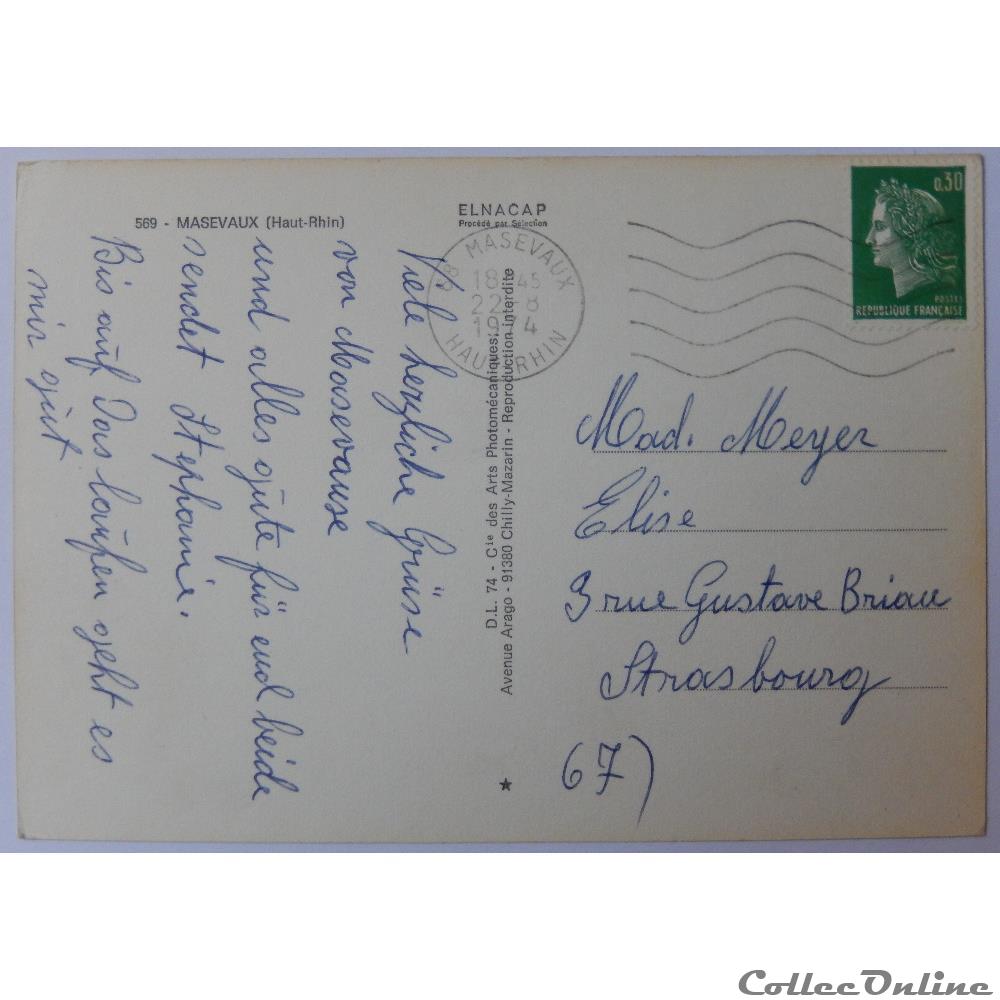 569 - MASEVAUX (Haut-Rhin)
ELNACAP
Procédé par Sélection
68 MASEVAUX
18 45
22-8
1974
HAUT-RHIN
0,30
POSTES
REPUBLIQUE FRANÇAISE
Viele herzliche Grüse
von Masevause
und alles gute für eud beide
sendet Stephanie.
Bis auf Das laufen geht es
mir gut
D.L. 74 - Cie des Arts Photomécaniques
Avenue Arago - 91380 Chilly-Mazarin - Reproduction interdite
Mad. Meyer
Elise
3 rue Gustave Briau
Strasbourg
67)
CollecOnline